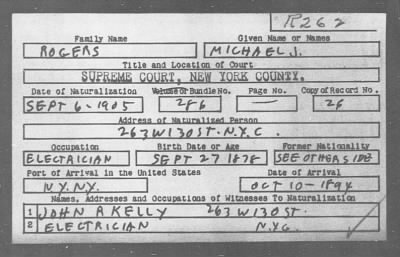 R262
Family Name Given Name or Names
ROGERS MICHAEL J.
Title and Location of Court
SUPREME COURT, NEW YORK COUNTY.
Date of Naturalization Volume or Bundle No. Page No. Copy of Record No.
SEPT 6-1905 286 — 26
Address of Naturalized Person
263 W 130 ST. N.Y.C.
Occupation Birth Date or Age Former Nationality
ELECTRICIAN SEPT 27 1878 SEE OTHER SIDE
Port of Arrival in the United States Date of Arrival
N.Y. N.Y. OCT 10-1894
Names, Addresses and Occupations of Witnesses To Naturalization
1 JOHN R KELLY 263 W 130 ST.
2 ELECTRICIAN N.Y.C.